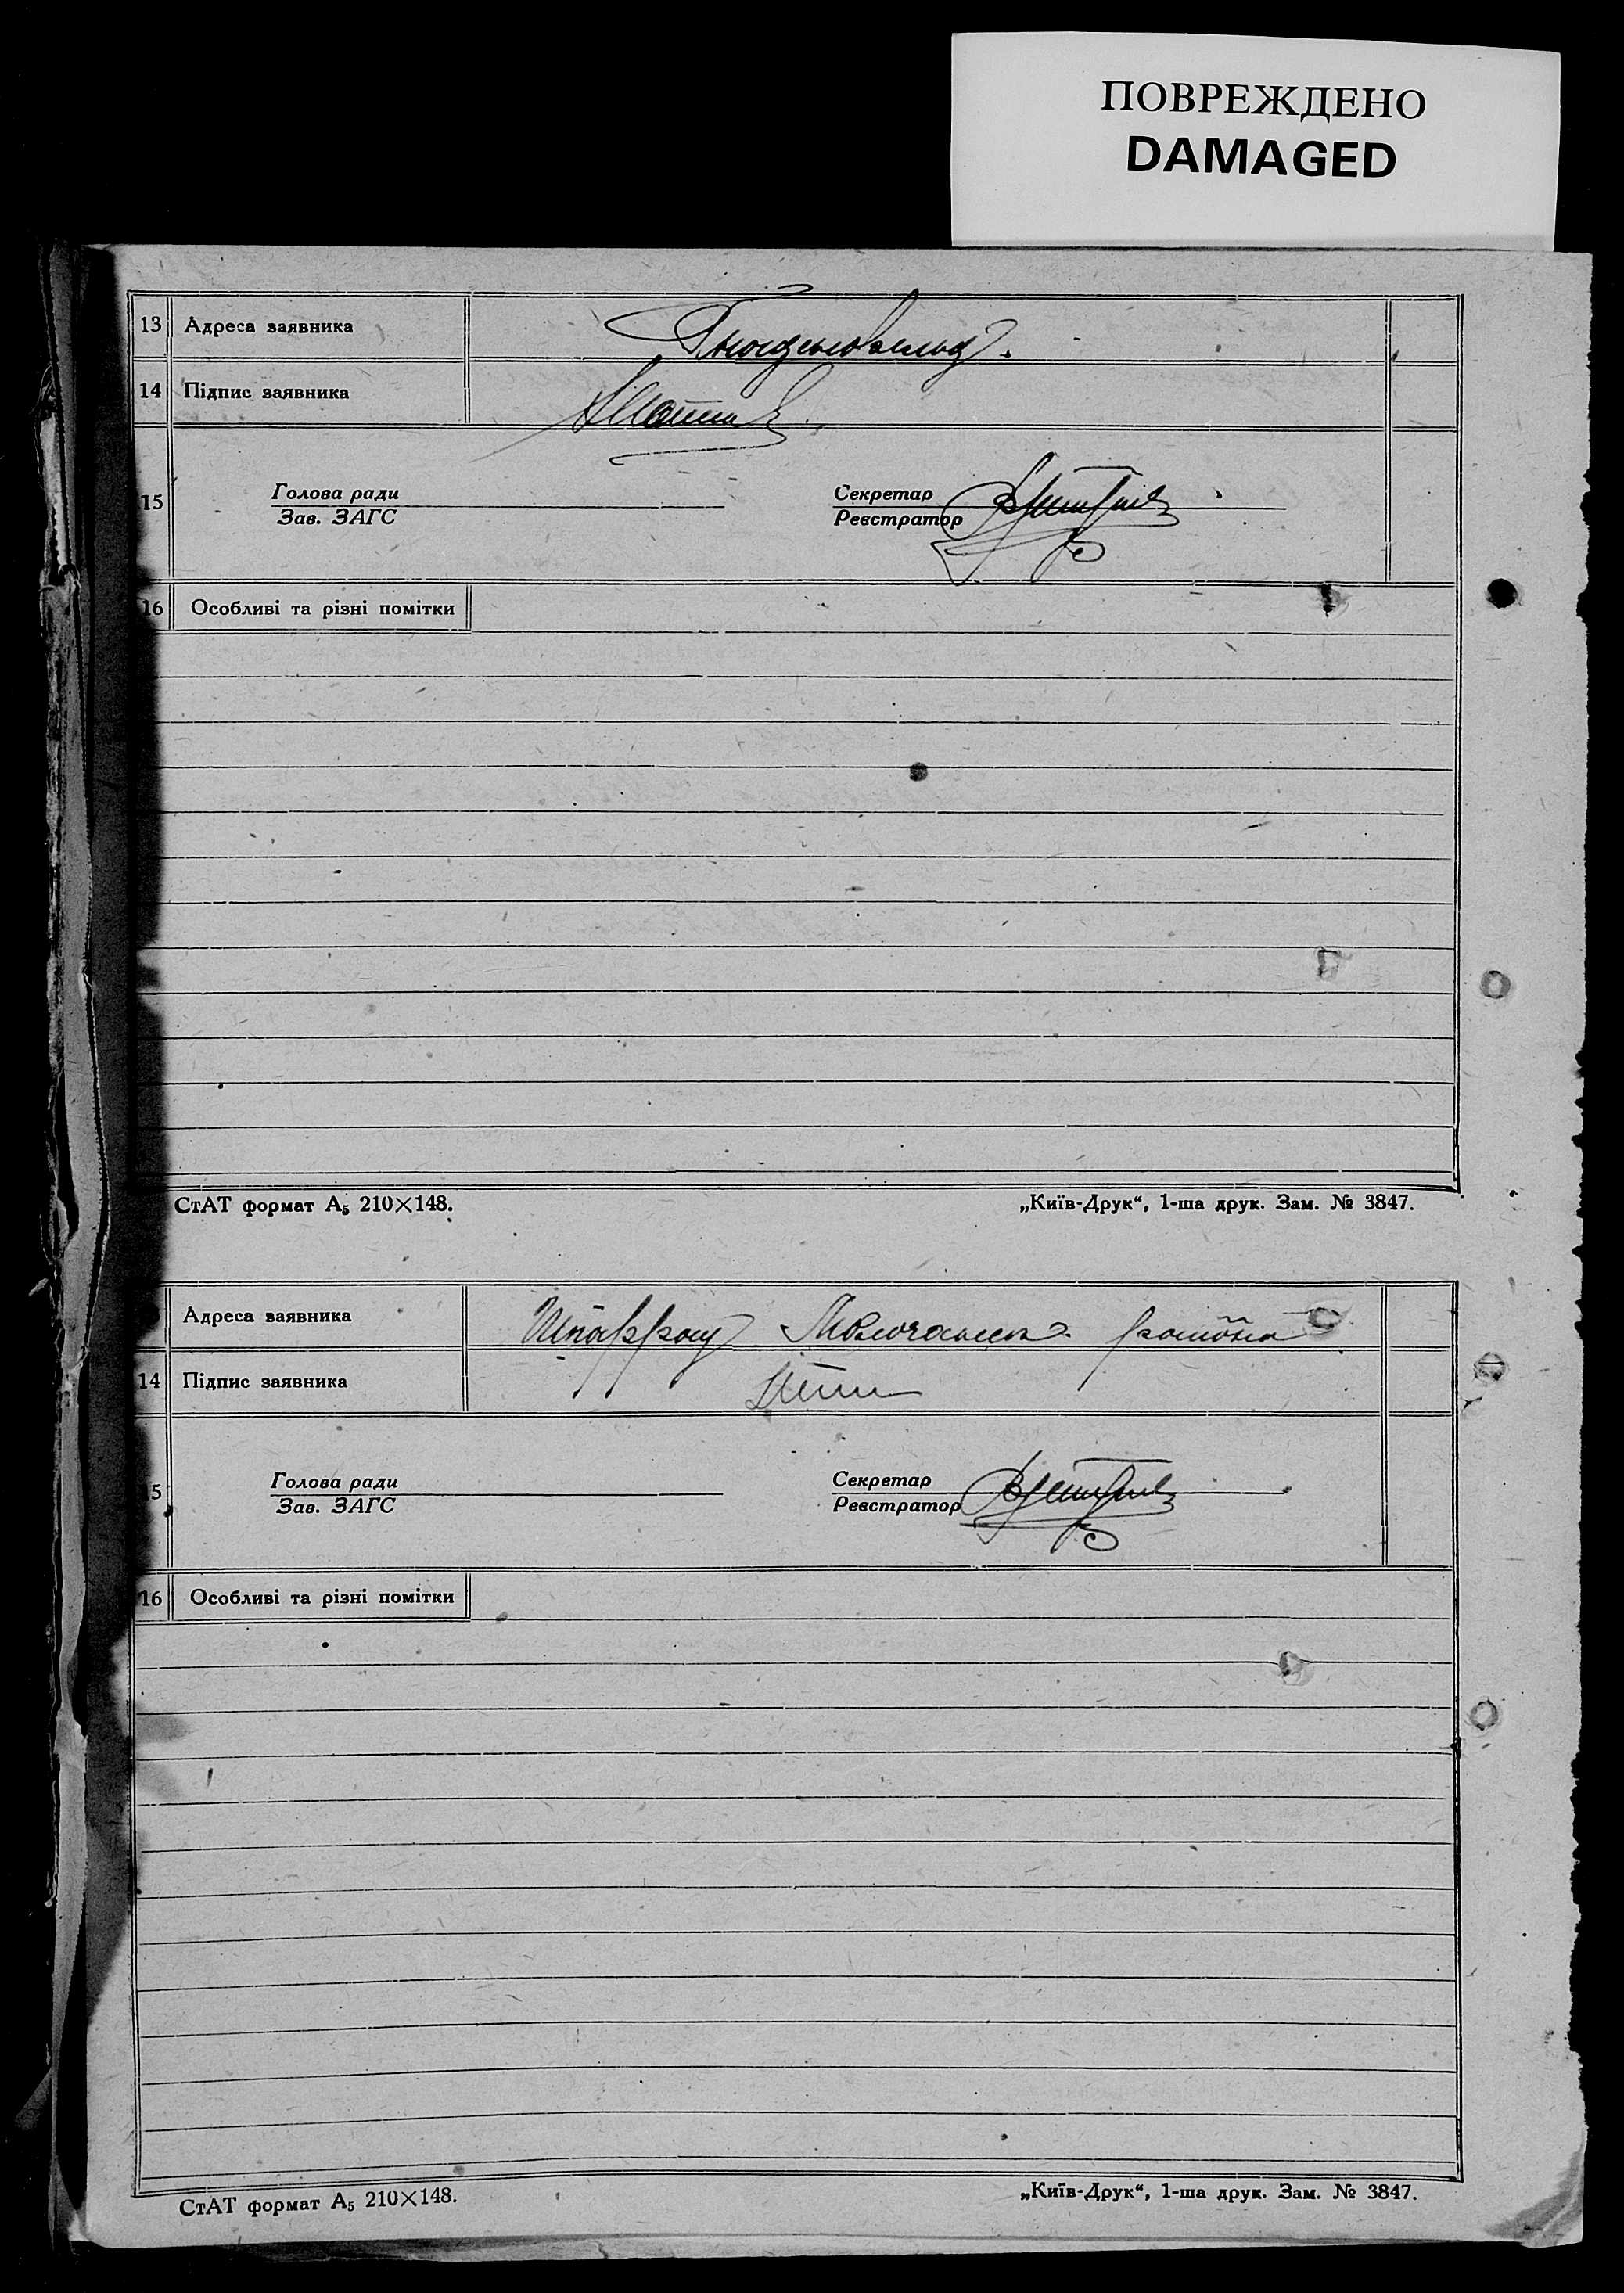 ПОВРЕЖДЕНО
DAMAGED
13 Адреса заявника
14 Підпис заявника
15 Голова ради Секретар
Зав. ЗАГС Реєстратор
16 Особливі та різні помітки
СтАТ формат А₅ 210×148. „Київ-Друк“, 1-ша друк. Зам. № 3847.
Адреса заявника Шпаррау Молочанськ. району
14 Підпис заявника
5 Голова ради Секретар
Зав. ЗАГС Реєстратор
16 Особливі та різні помітки
СтАТ формат А₅ 210×148. „Київ-Друк“, 1-ша друк. Зам. № 3847.